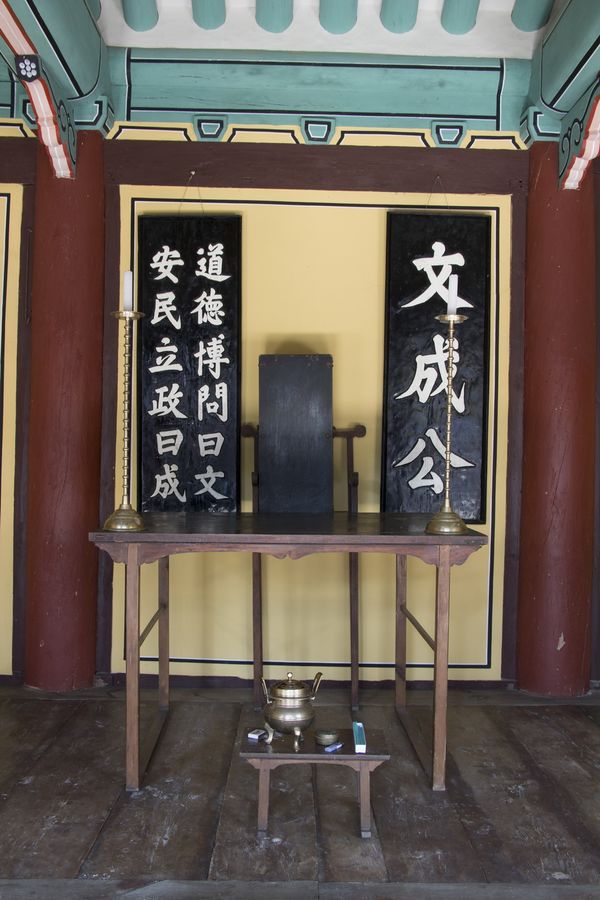 文成公
道德博問曰文
安民立政曰成